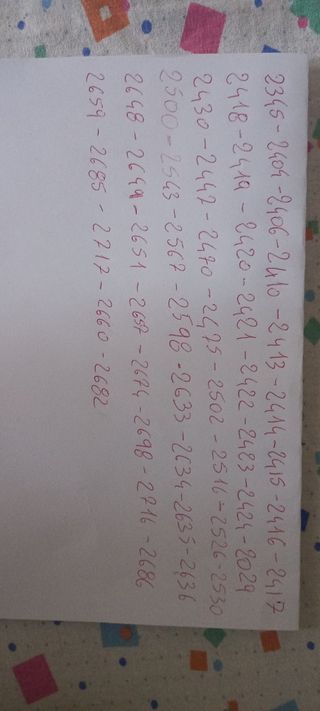 2345 - 2404 - 2406 - 2410 - 2413 - 2414 - 2415 - 2416 - 2417
2418 - 2419 - 2420 - 2421 - 2422 - 2423 - 2424 - 2029
2430 - 2447 - 2470 - 2475 - 2502 - 2516 - 2526 - 2530
2500 - 2543 - 2567 - 2598 - 2633 - 2634 - 2635 - 2636
2648 - 2649 - 2651 - 2657 - 2674 - 2698 - 2714 - 2686
2659 - 2685 - 2717 - 2660 - 2682